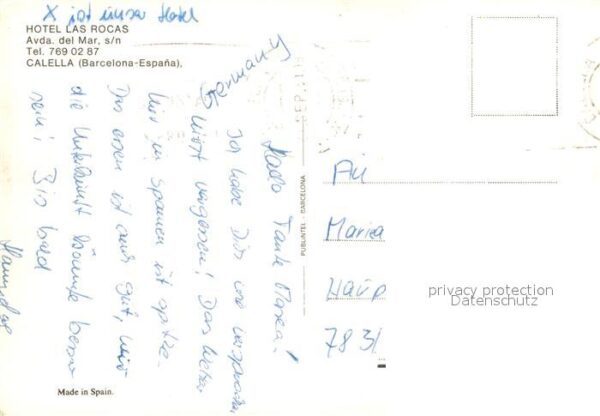 X ist unser Hotel
HOTEL LAS ROCAS
Avda. del Mar, s/n
Tel. 769 02 87
CALELLA (Barcelona-España).
Germany
Hallo Tante Marea!
Ich habe Dich wie versprochen
nicht vergessen! Das Wetter
hier in Spanien ist spitze.
Das essen ist auch gut, nur
die Unterkunft könnte besser
sein! Bis bald
PUBLINTEL - BARCELONA
An
Marea
7831
privacy protection
Datenschutz
Made in Spain.